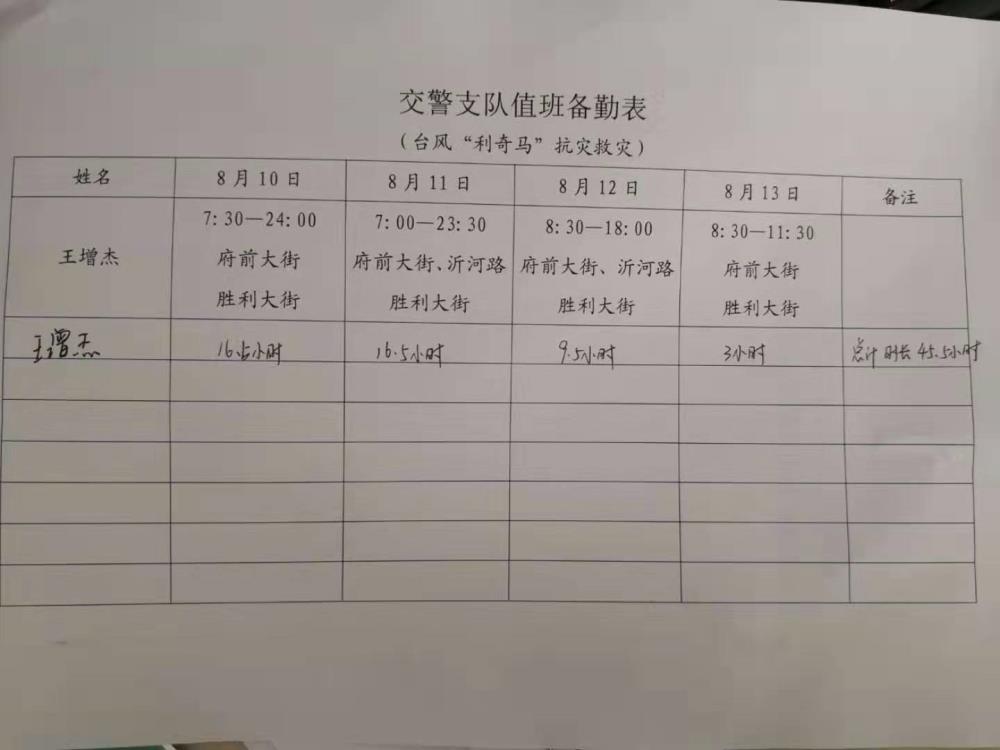 交警支队值班备勤表
（台风“利奇马”抗灾救灾）
姓名 8月10日 8月11日 8月12日 8月13日 备注
7:30—24:00 7:00—23:30 8:30—18:00 8:30—11:30
王增杰 府前大街 府前大街、沂河路 府前大街、沂河路 府前大街
胜利大街 胜利大街 胜利大街 胜利大街
王增杰 16.5小时 16.5小时 9.5小时 3小时 总计时长45.5小时